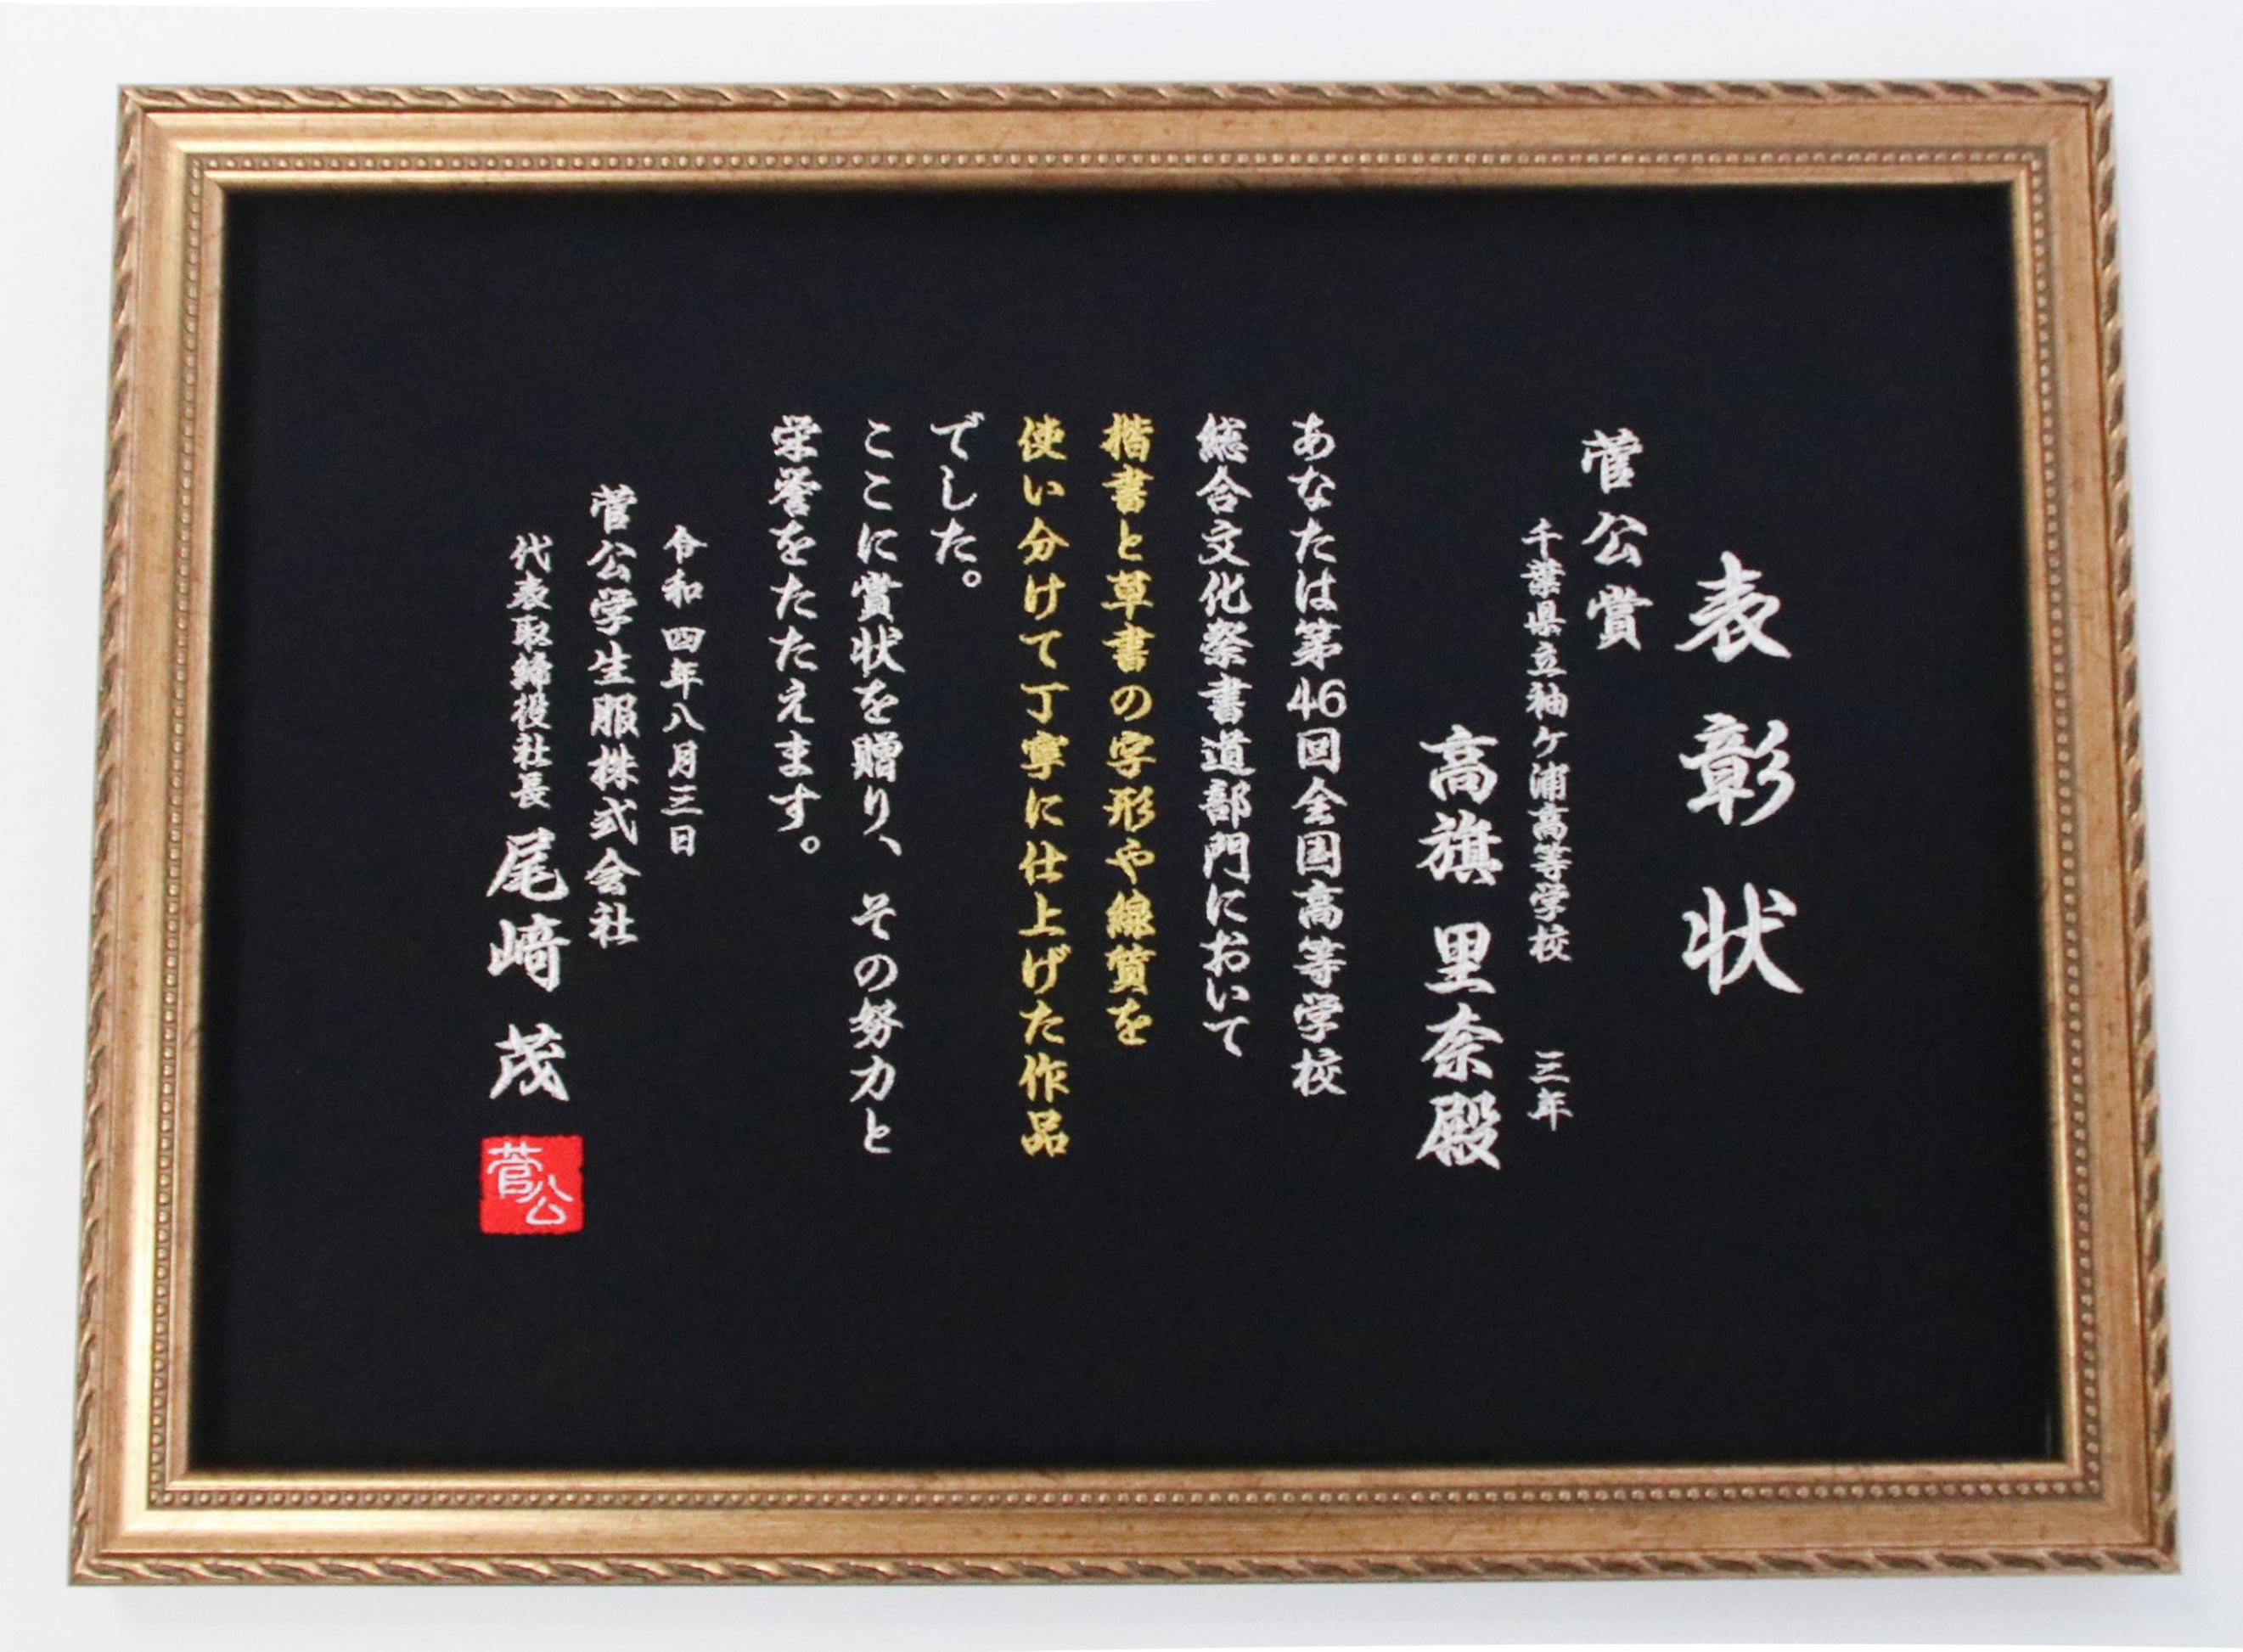 表彰状
菅公賞
千葉県立袖ケ浦高等学校 三年
高旗 里奈殿
あなたは第46回全国高等学校
総合文化祭書道部門において
楷書と草書の字形や線質を
使い分けて丁寧に仕上げた作品
でした。
ここに賞状を贈り、その努力と
栄誉をたたえます。
令和四年八月三日
菅公学生服株式会社
代表取締役社長 尾﨑 茂
菅公